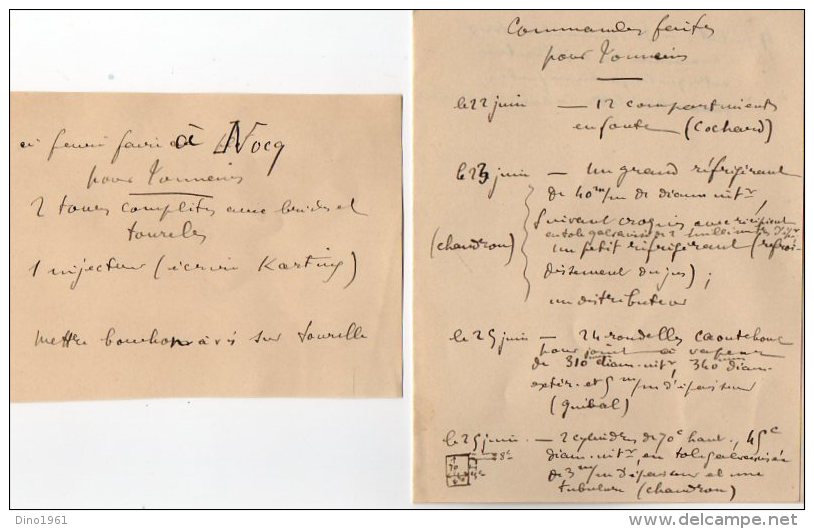 à Nocq
pour Tonneins
2 tours complètes avec brides et
tourelles
1 injecteur (écrire Karting)
mettre bouchon à vis sur tourelle
Commandes faites
pour Tonneins
le 22 juin — 12 compartiments
en fonte (Cochard)
le 23 juin — un grand réfrigérant
de 40 m/m de diam. intr
suivant croquis avec récipient
en tole galvanisée de 2 millimètres d'épr
un petit réfrigérant (refroi-
dissement du jus) ;
un distributeur
(chaudron)
le 25 juin — 24 rondelles caoutchouc
pour joint à vapeur
de 310 diam. intr, 340 diam.
extér. et 5 m/m d'épaisseur
(Guibal)
le 25 juin — 2 cylindres de 70c haut., 45c
diam. intr en tole galvanisée
de 3 m/m d'épaisseur et une
tubulure (chaudron)
Dino1961
delcampe.net